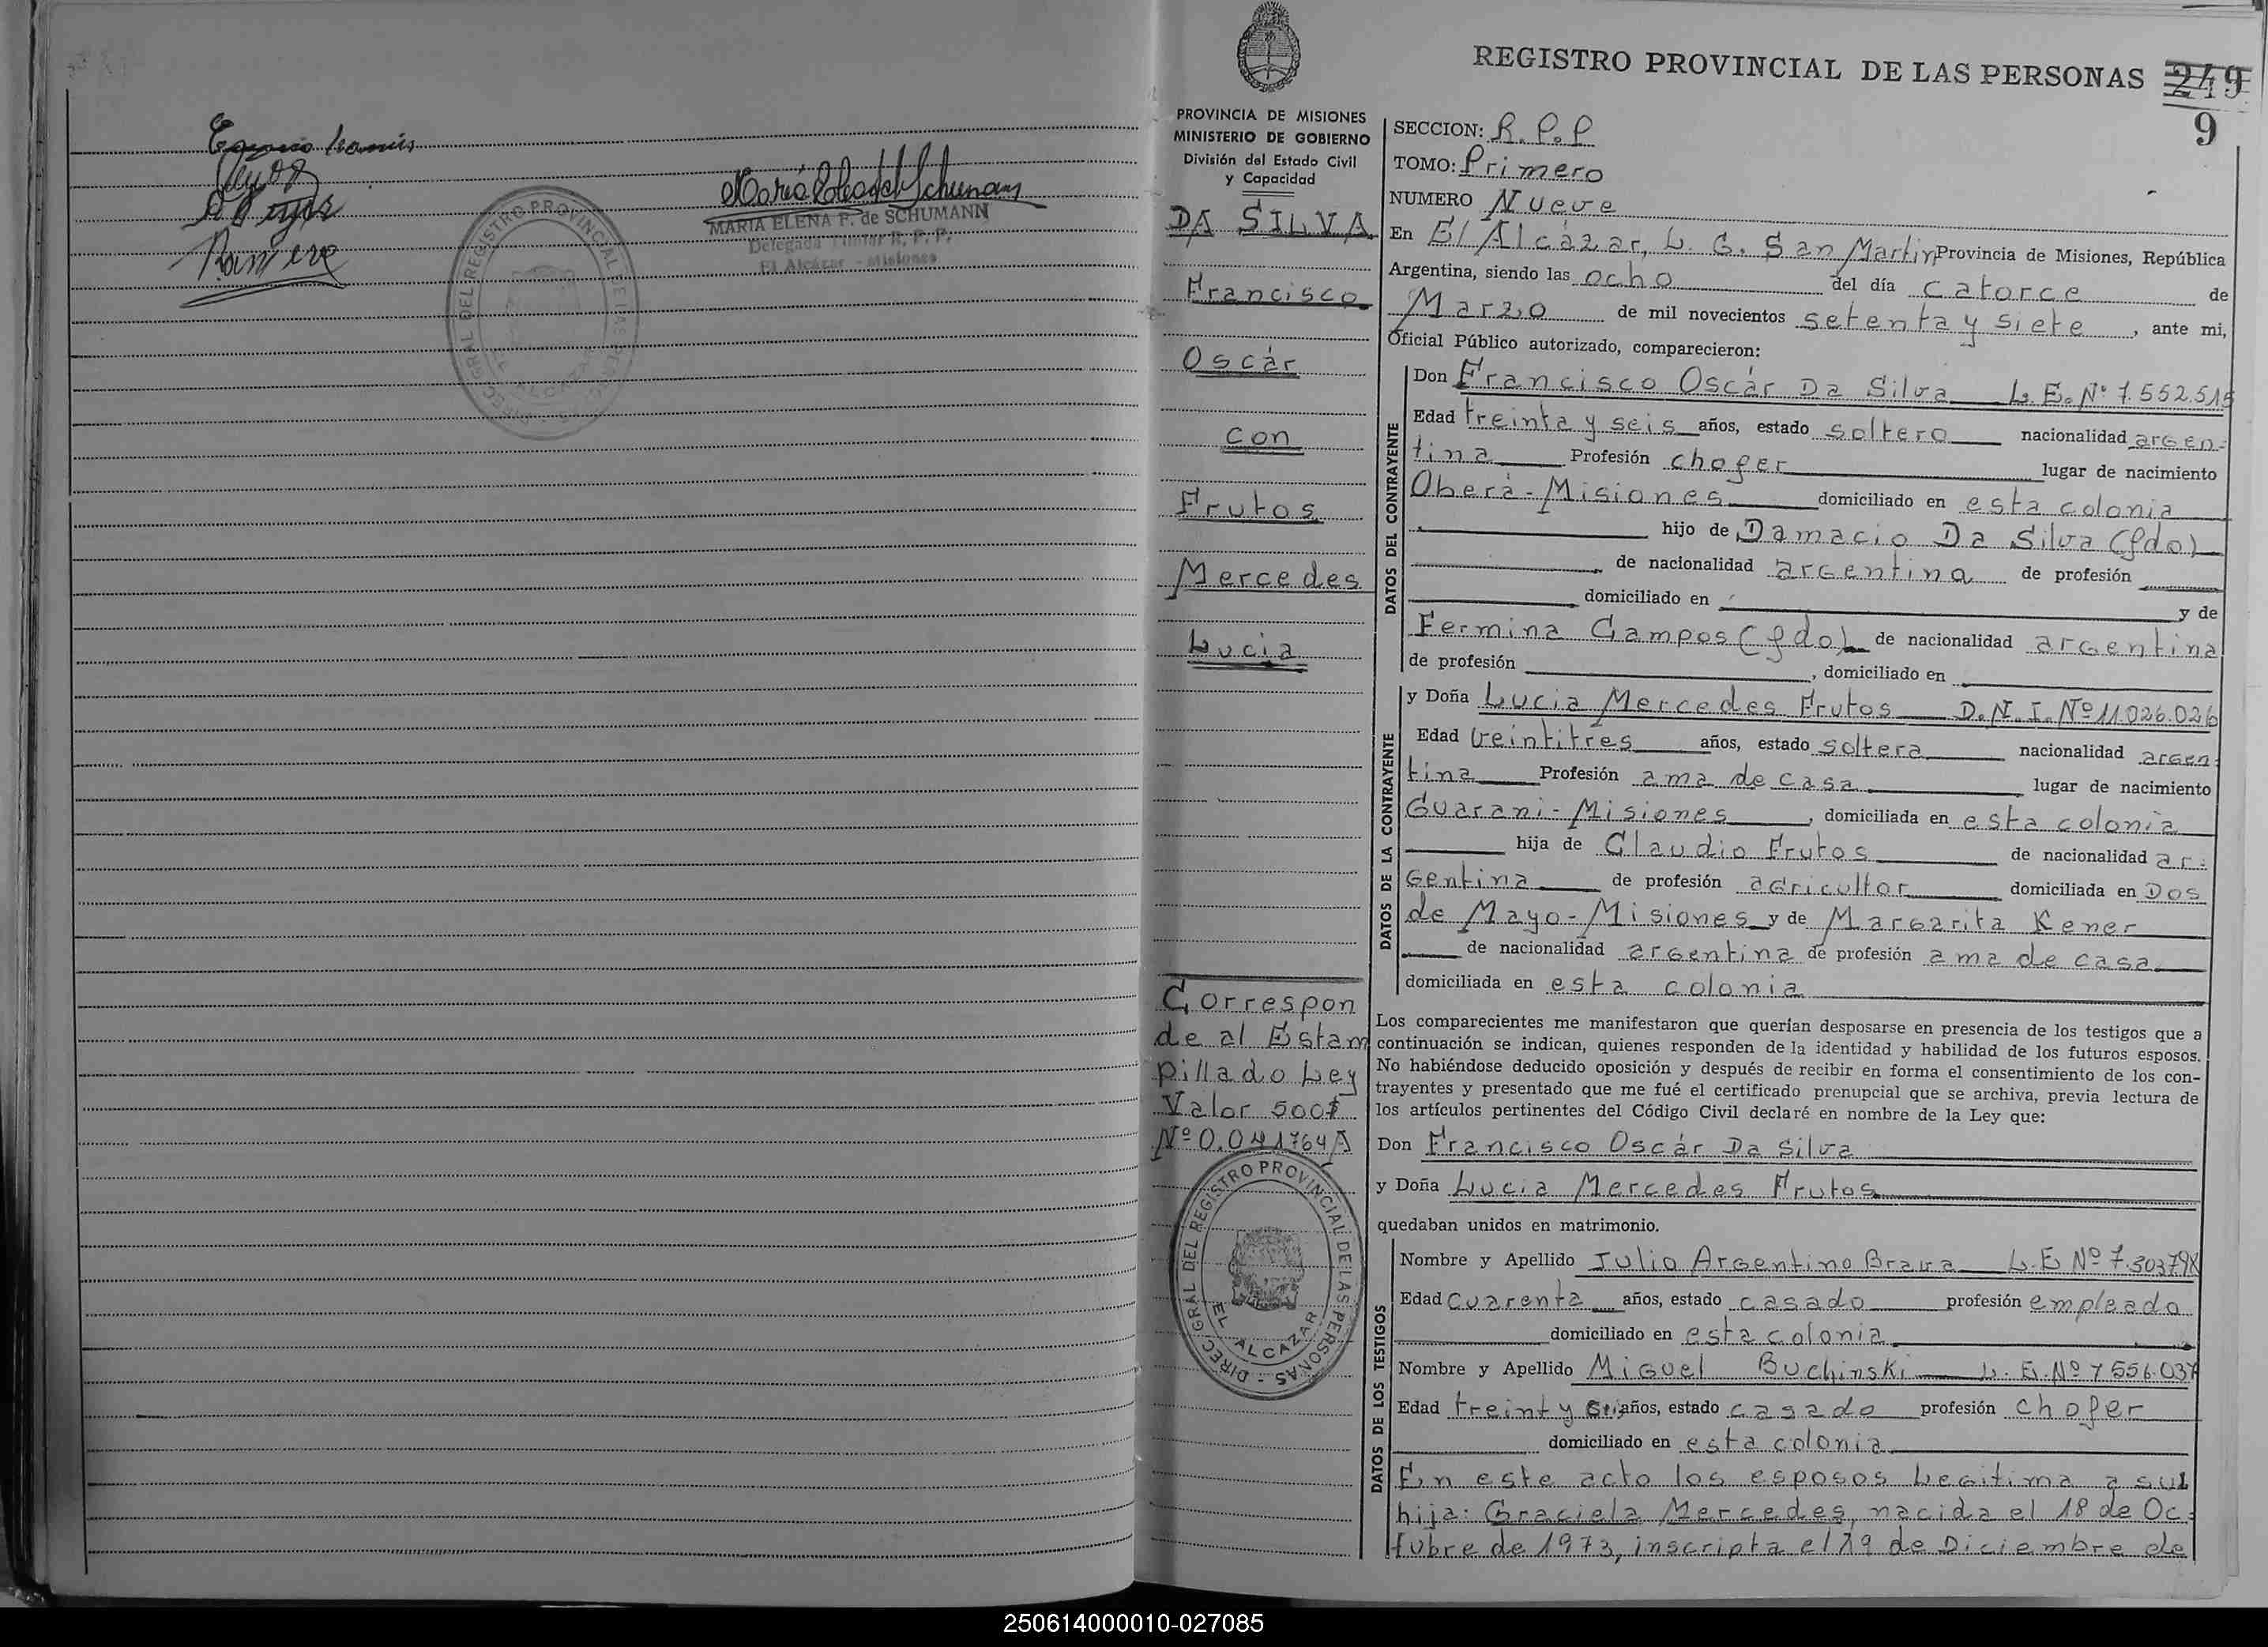 Ramírez
María Elena P. de Schumann
MARIA ELENA P. de SCHUMANN
Delegada Titular R. P. P.
El Alcázar - Misiones
DIREC. GRAL DEL REGISTRO PROVINCIAL DE LAS PERSONAS - EL ALCAZAR
REGISTRO PROVINCIAL DE LAS PERSONAS 249
9
PROVINCIA DE MISIONES
MINISTERIO DE GOBIERNO
División del Estado Civil
y Capacidad
DA SILVA
Francisco
Oscár
con
Frutos
Mercedes
Lucia
Correspon
de al Estam
pillado Ley
Valor 500$
Nº 0.041764A
DIREC. GRAL DEL REGISTRO PROVINCIAL DE LAS PERSONAS - EL ALCAZAR
SECCION: R.P.P
TOMO: Primero
NUMERO Nueve
En El Alcázar, L. G. San Martin Provincia de Misiones, República
Argentina, siendo las ocho del día catorce de
Marzo de mil novecientos setenta y siete, ante mi,
Oficial Público autorizado, comparecieron:
DATOS DEL CONTRAYENTE
Don Francisco Oscár Da Silva L.E. Nº 7.552.515
Edad treinta y seis años, estado soltero nacionalidad argen-
tina Profesión chofer lugar de nacimiento
Oberá - Misiones domiciliado en esta colonia
hijo de Damacio Da Silva (fdo)
de nacionalidad argentina de profesión
domiciliado en y de
Fermina Campos (fdo) de nacionalidad argentina
de profesión , domiciliado en
DATOS DE LA CONTRAYENTE
y Doña Lucia Mercedes Frutos D.N.I. Nº 11.026.026
Edad veintitres años, estado soltera nacionalidad argen-
tina Profesión ama de casa lugar de nacimiento
Guarani - Misiones, domiciliada en esta colonia
hija de Claudio Frutos de nacionalidad ar-
gentina de profesión agricultor domiciliada en Dos
de Mayo - Misiones y de Margarita Kener
de nacionalidad argentina de profesión ama de casa
domiciliada en esta colonia
Los comparecientes me manifestaron que querían desposarse en presencia de los testigos que a
continuación se indican, quienes responden de la identidad y habilidad de los futuros esposos.
No habiéndose deducido oposición y después de recibir en forma el consentimiento de los con-
trayentes y presentado que me fué el certificado prenupcial que se archiva, previa lectura de
los artículos pertinentes del Código Civil declaré en nombre de la Ley que:
Don Francisco Oscár Da Silva
y Doña Lucia Mercedes Frutos
quedaban unidos en matrimonio.
DATOS DE LOS TESTIGOS
Nombre y Apellido Julio Argentino Brava L.E Nº 7.303798
Edad cuarenta años, estado casado profesión empleado
domiciliado en esta colonia
Nombre y Apellido Miguel Buchinski L.E. Nº 7556.037
Edad treint y seis años, estado casado profesión chofer
domiciliado en esta colonia
En este acto los esposos Legitima a su
hija: Graciela Mercedes, nacida el 18 de Oc-
tubre de 1973, inscripta el 19 de Diciembre de
250614000010-027085